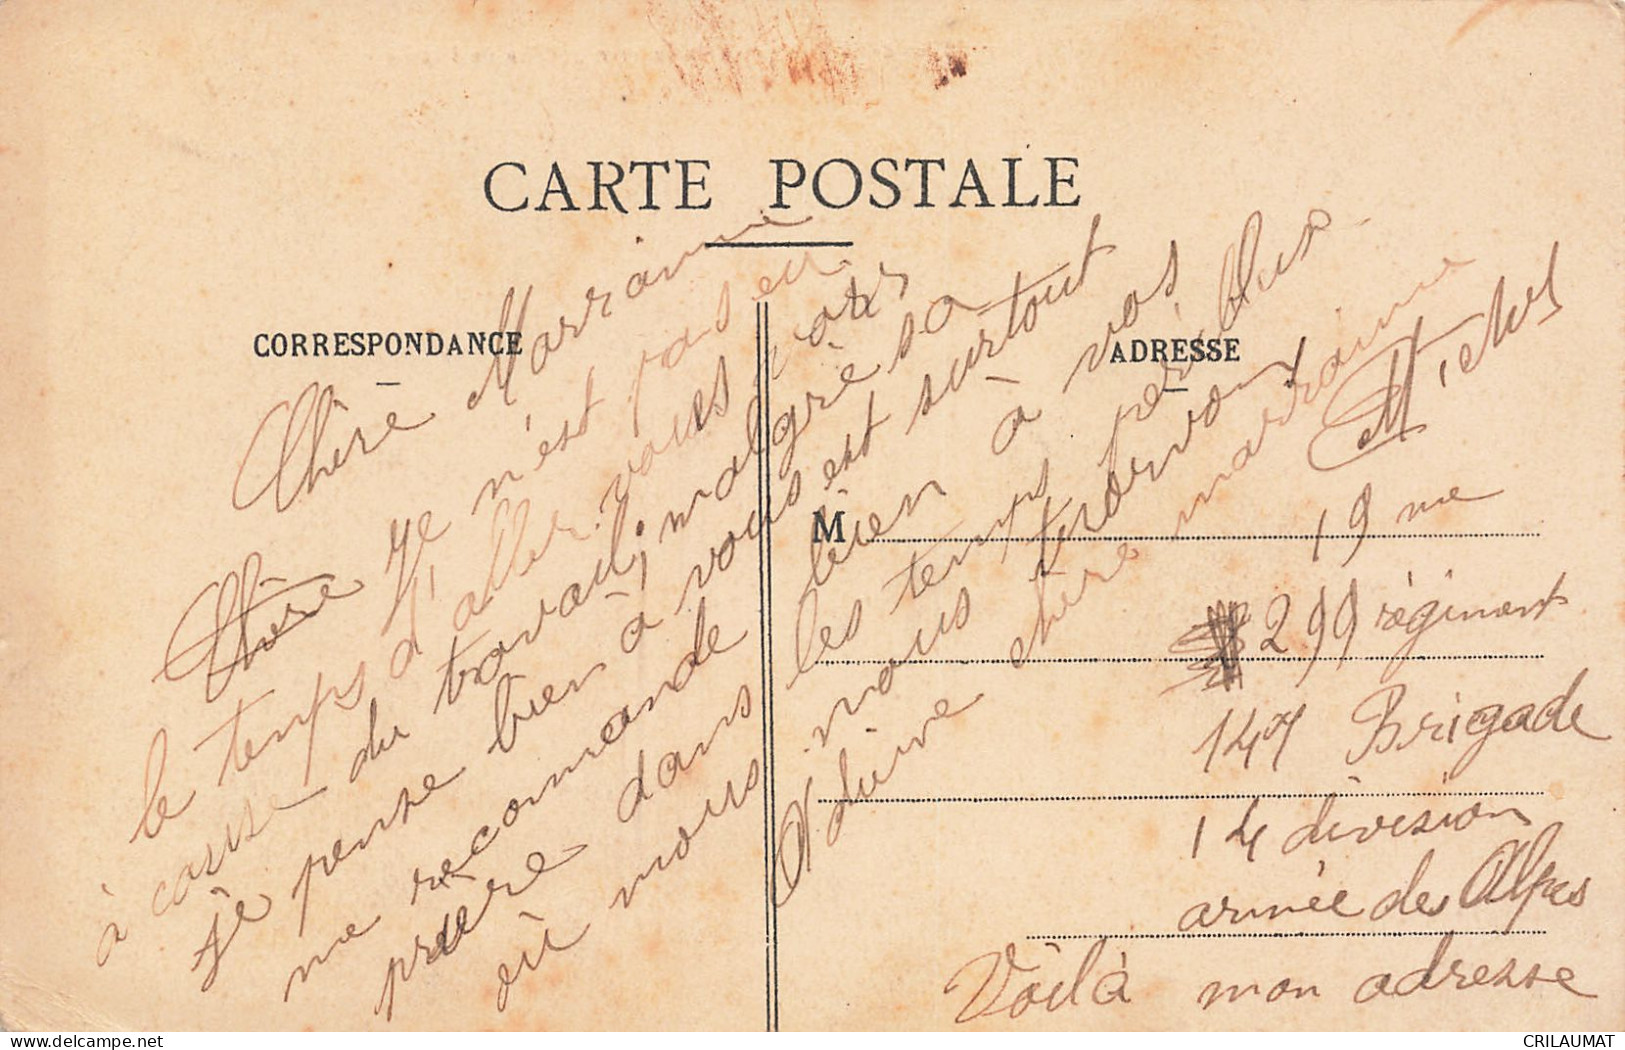 CARTE POSTALE
CORRESPONDANCE
ADRESSE
Chère Marrianne
Chère Je n'est pas eu
le temps d'aller vous voir
à cause du travail; malgré sa
je pense bien à vous est surtout
me recommande bien à vos
prière dans les temps périblus
où nous nous trouvons
Adieu chère marraine
Michel
M
19 me
299 régiment
147 Brigade
14 division
armée des Alpes
Voilà mon adresse
CRILAUMAT